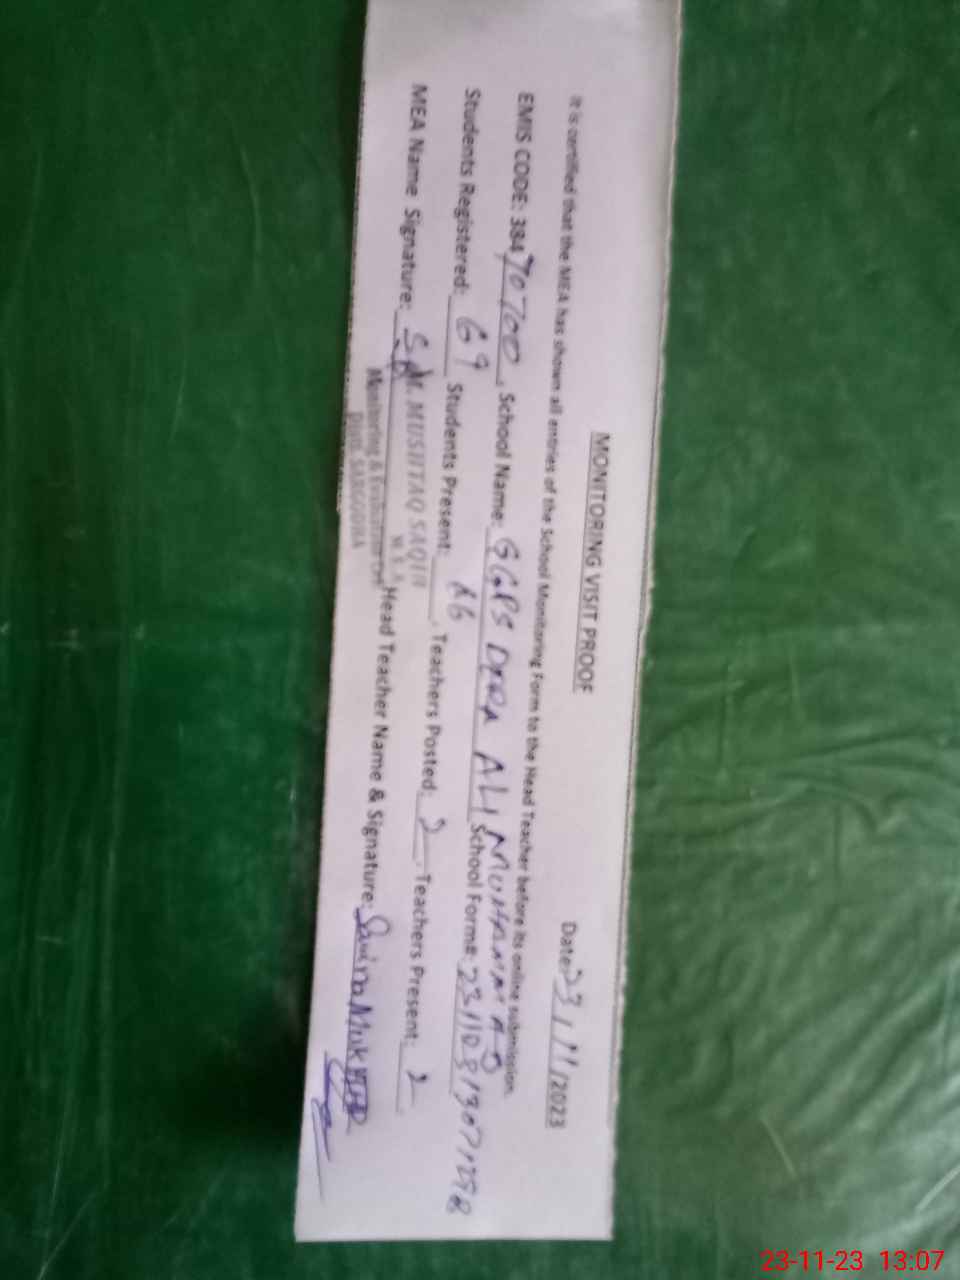 MONITORING VISIT PROOF
Date: 23/11/2023
It is certified that the MEA has shown all entries of the School Monitoring Form to the Head Teacher before its online submission.
EMIS CODE: 38470700, School Name: GGPS DERA ALI MUHAMMAD School Form#:
Students Registered: 69 Students Present: 66, Teachers Posted: 2, Teachers Present: 2.
MEA Name Signature: M. MUSHTAQ SAQIB Head Teacher Name & Signature:
M.E.A
Monitoring & Evaluation
Distt. SARGODHA
23-11-23 13:07